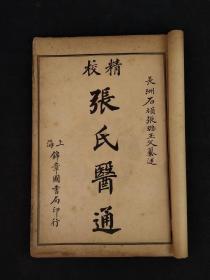 長洲石頑張璐玉父纂述
精校
張氏醫通
上海錦章圖書局印行